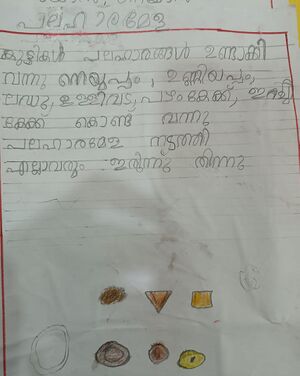 പലഹാരമേള
കുട്ടികൾ പലഹാരങ്ങൾ ഉണ്ടാക്കി
വന്നു നെയ്യപ്പം, ഉണ്ണിയപ്പം,
ലഡു, ഉള്ളിവട, പഴംകേക്ക്,
കേക്ക് കൊണ്ട് വന്നു
പലഹാരമേള നടത്തി
എല്ലാവരും ഇരുന്ന് തിന്നു